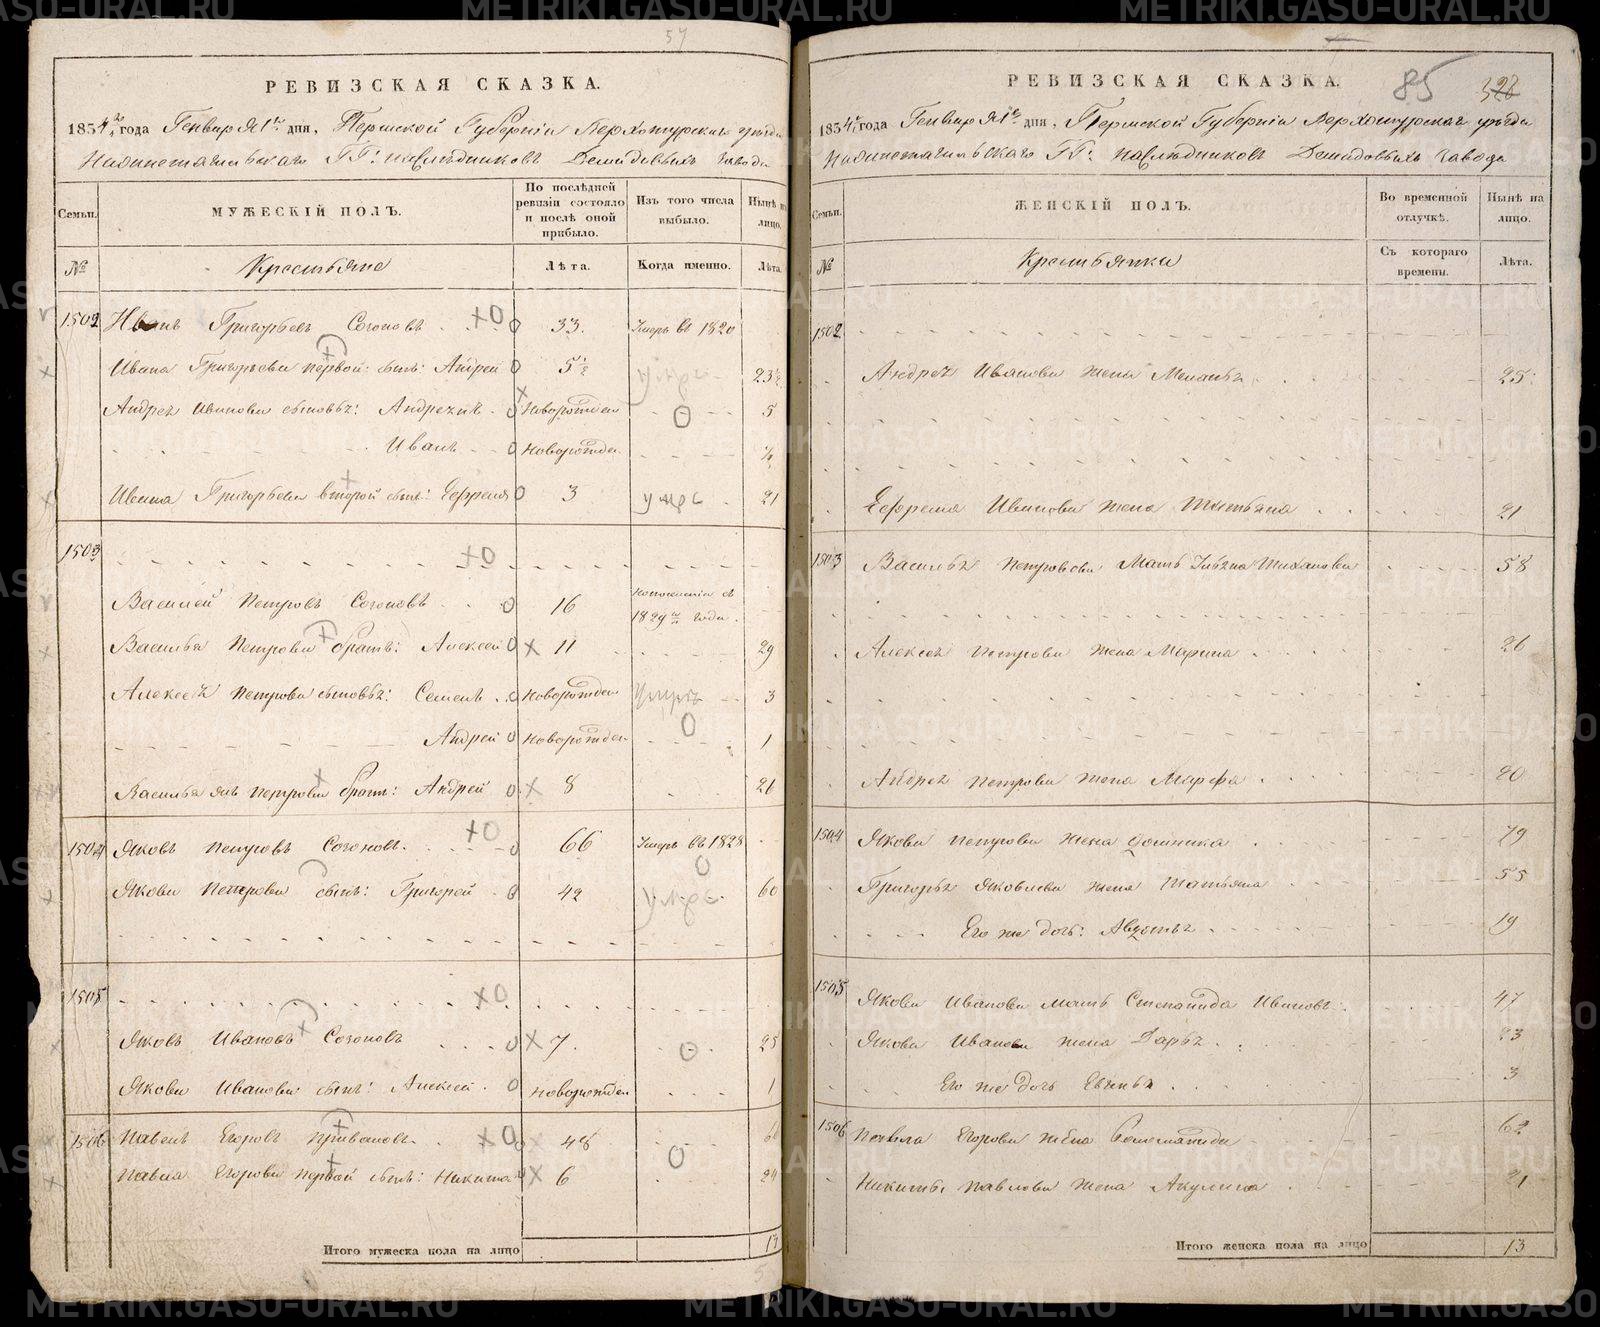 57
РЕВИЗСКАЯ СКАЗКА.
1834 года Генваря 1го дня, Пермской Губерніи Верхотурскаго уезда
Нижнетагильскаго ГГ: наследниковъ Демидовыхъ завода
Семьи.
МУЖЕСКІЙ ПОЛЪ.
По послѣдней ревизіи состояло и послѣ оной прибыло.
Изъ того числа выбыло.
Нынѣ на лицо.
№
Крестьяне
Лѣта.
Когда именно.
Лѣта.
1502 Иванъ Григорьевъ Созоновъ 33. Умеръ въ 1820
Ивана Григорьева первой сынъ: Андрей 5½ умръ 23½
Андрея Иванова сыновья: Андреянъ Новорожден 5
Иванъ Новорожден
Ивана Григорьева второй сынъ: Ефремъ 3 умръ 21
1503
Василей Петровъ Созоновъ 16 1829 года.
Василья Петрова братъ: Алексей 11 29
Алексея Петрова сыновья: Семенъ Новорожден Умръ 3
Андрей Новорожден 1
Василья Петрова братъ: Андрей 8 26
1504 Яковъ Петровъ Созоновъ. 66 Умеръ въ 1828
Якова Петрова сынъ: Григорей 42 умръ 60
1505
Яковъ Ивановъ Созоновъ 7. 25
Якова Иванова сынъ: Алексей Новорожден 1
1506 Павелъ Егоровъ 48
Павла Егорова первой сынъ: Никита 6 24
Итого мужеска пола на лицо 13
85 328
РЕВИЗСКАЯ СКАЗКА.
1834 года Генваря 1го дня, Пермской Губерніи Верхотурскаго уезда
Нижнетагильскаго ГГ: наследниковъ Демидовыхъ завода
Семьи.
ЖЕНСКІЙ ПОЛЪ.
Во временной отлучкѣ.
Нынѣ на лицо.
№
Крестьянки
Съ котораго времени.
Лѣта.
1502
Андрея Иванова жена Меланья 25
Ефрема Иванова жена Татьяна 21
1503 Василья Петрова Мать Ульяна 58
Алексея Петрова жена Марина 26
Андрея Петрова жена Марфа 20
1504 Якова Петрова жена 79
Григорья Яковлева жена Татьяна 55
Его же дочь: Авдотья 19
1505 Якова Иванова мать Степанида Иванова 47
Якова Иванова жена Дарья 23
Его же дочь Евгенья 3
1506 Павла Егорова жена 62
Никиты Павлова жена Акулина 21
Итого женска пола на лицо 13
METRIKI.GASO-URAL.RU